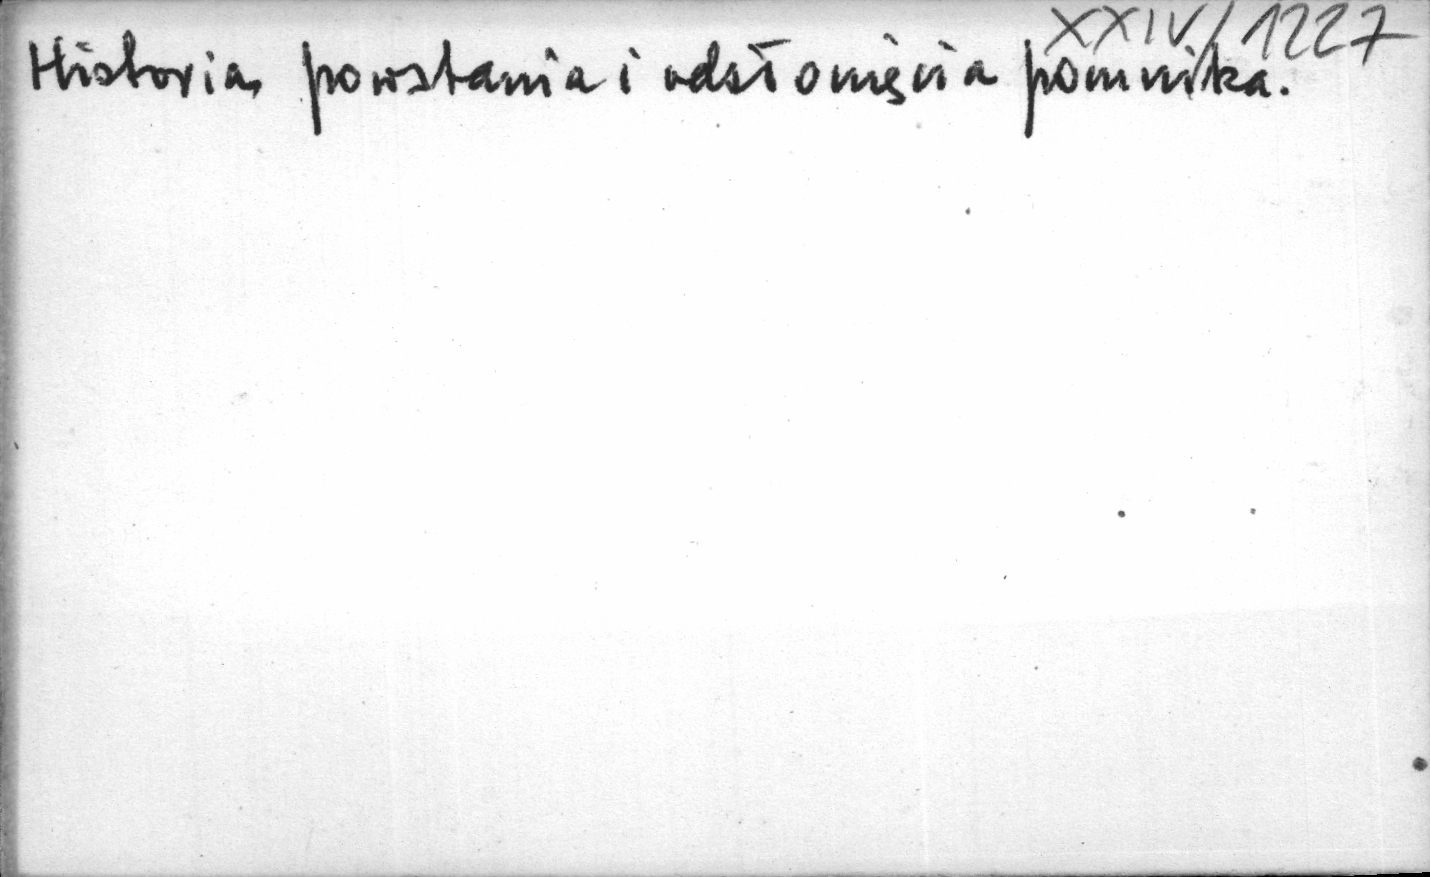 XXIV/1227
Historia powstania i odsłonięcia pomnika.